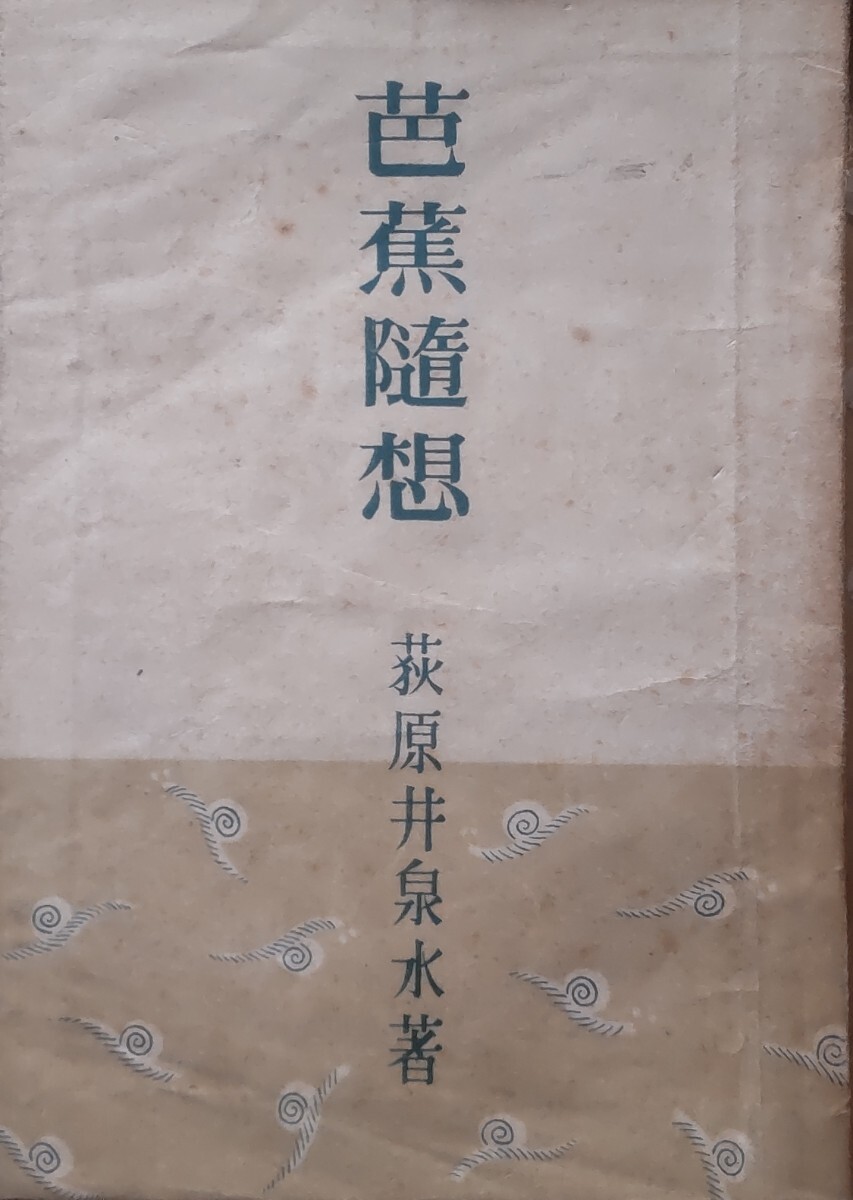 芭蕉隨想
荻原井泉水著